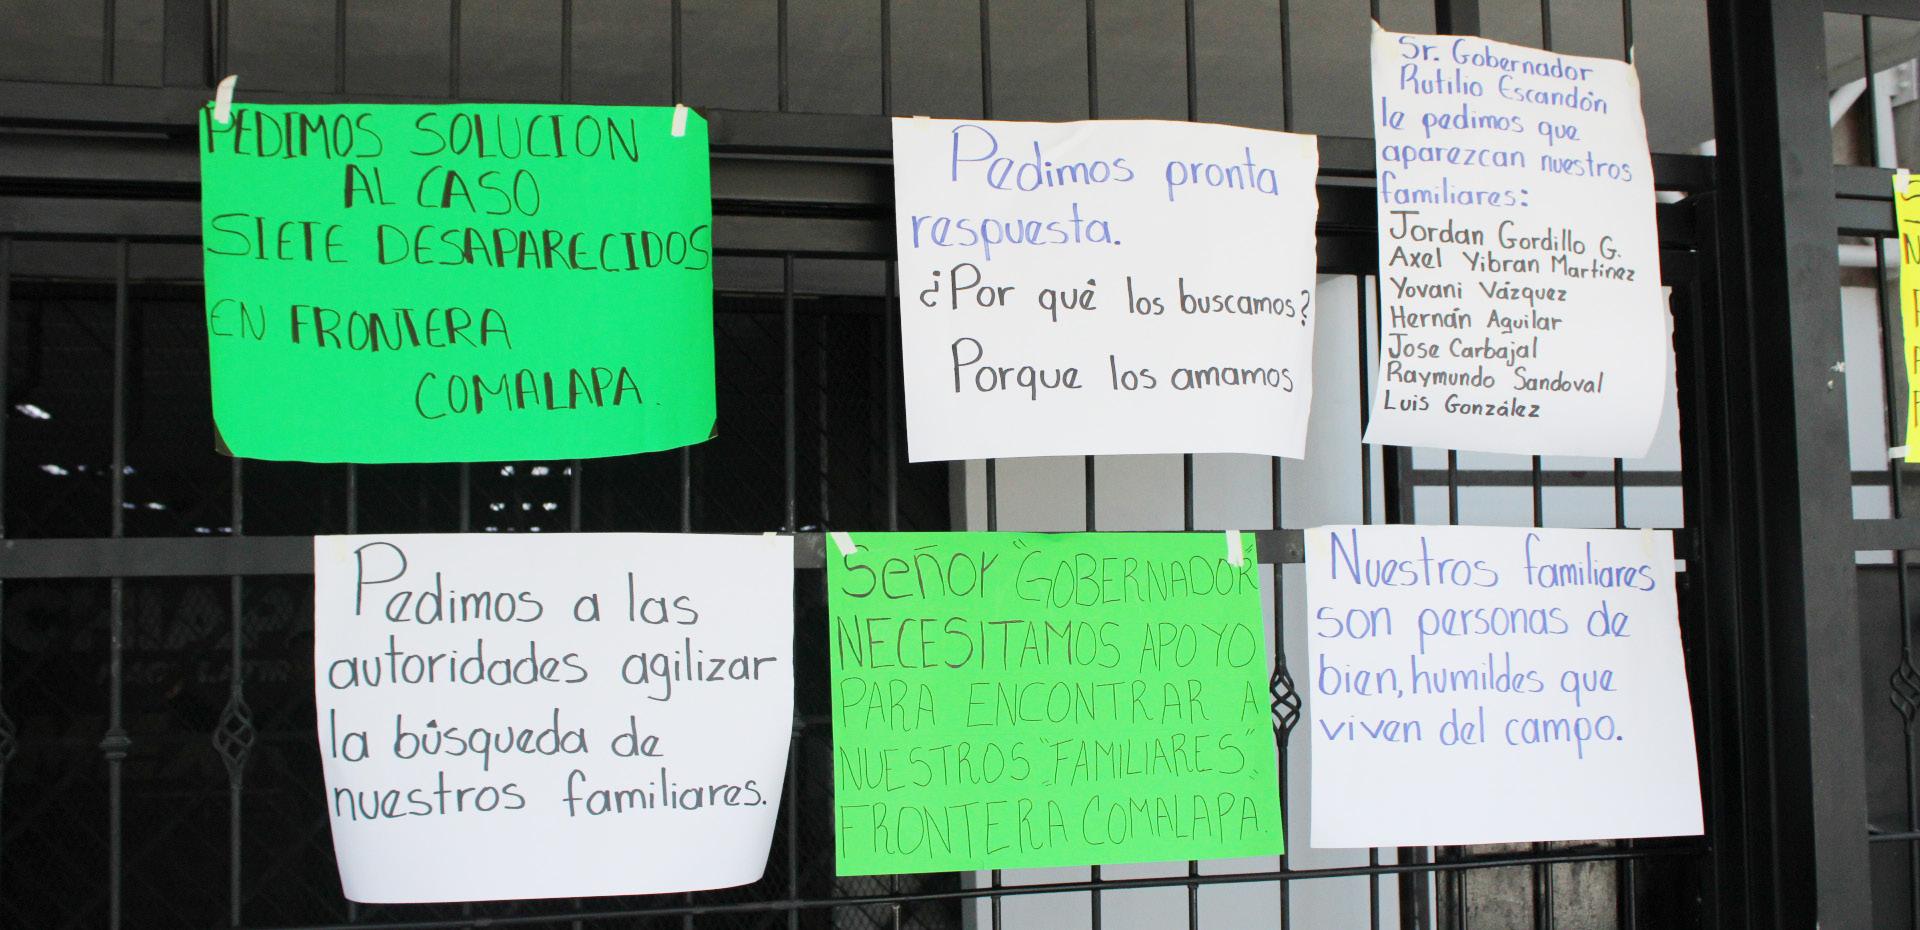 PEDIMOS SOLUCION
AL CASO
SIETE DESAPARECIDOS
EN FRONTERA
COMALAPA.
Pedimos pronta
respuesta.
¿Por qué los buscamos?
Porque los amamos
Sr. Gobernador
Rutilio Escandón
le pedimos que
aparezcan nuestros
familiares:
Jordan Gordillo G.
Axel Yibran Martinez
Yovani Vázquez
Hernán Aguilar
Jose Carbajal
Raymundo Sandoval
Luis González
Pedimos a las
autoridades agilizar
la búsqueda de
nuestros familiares.
Señor "GOBERNADOR"
NECESITAMOS APOYO
PARA ENCONTRAR A
NUESTROS "FAMILIARES"
FRONTERA COMALAPA.
Nuestros familiares
son personas de
bien, humildes que
viven del campo.